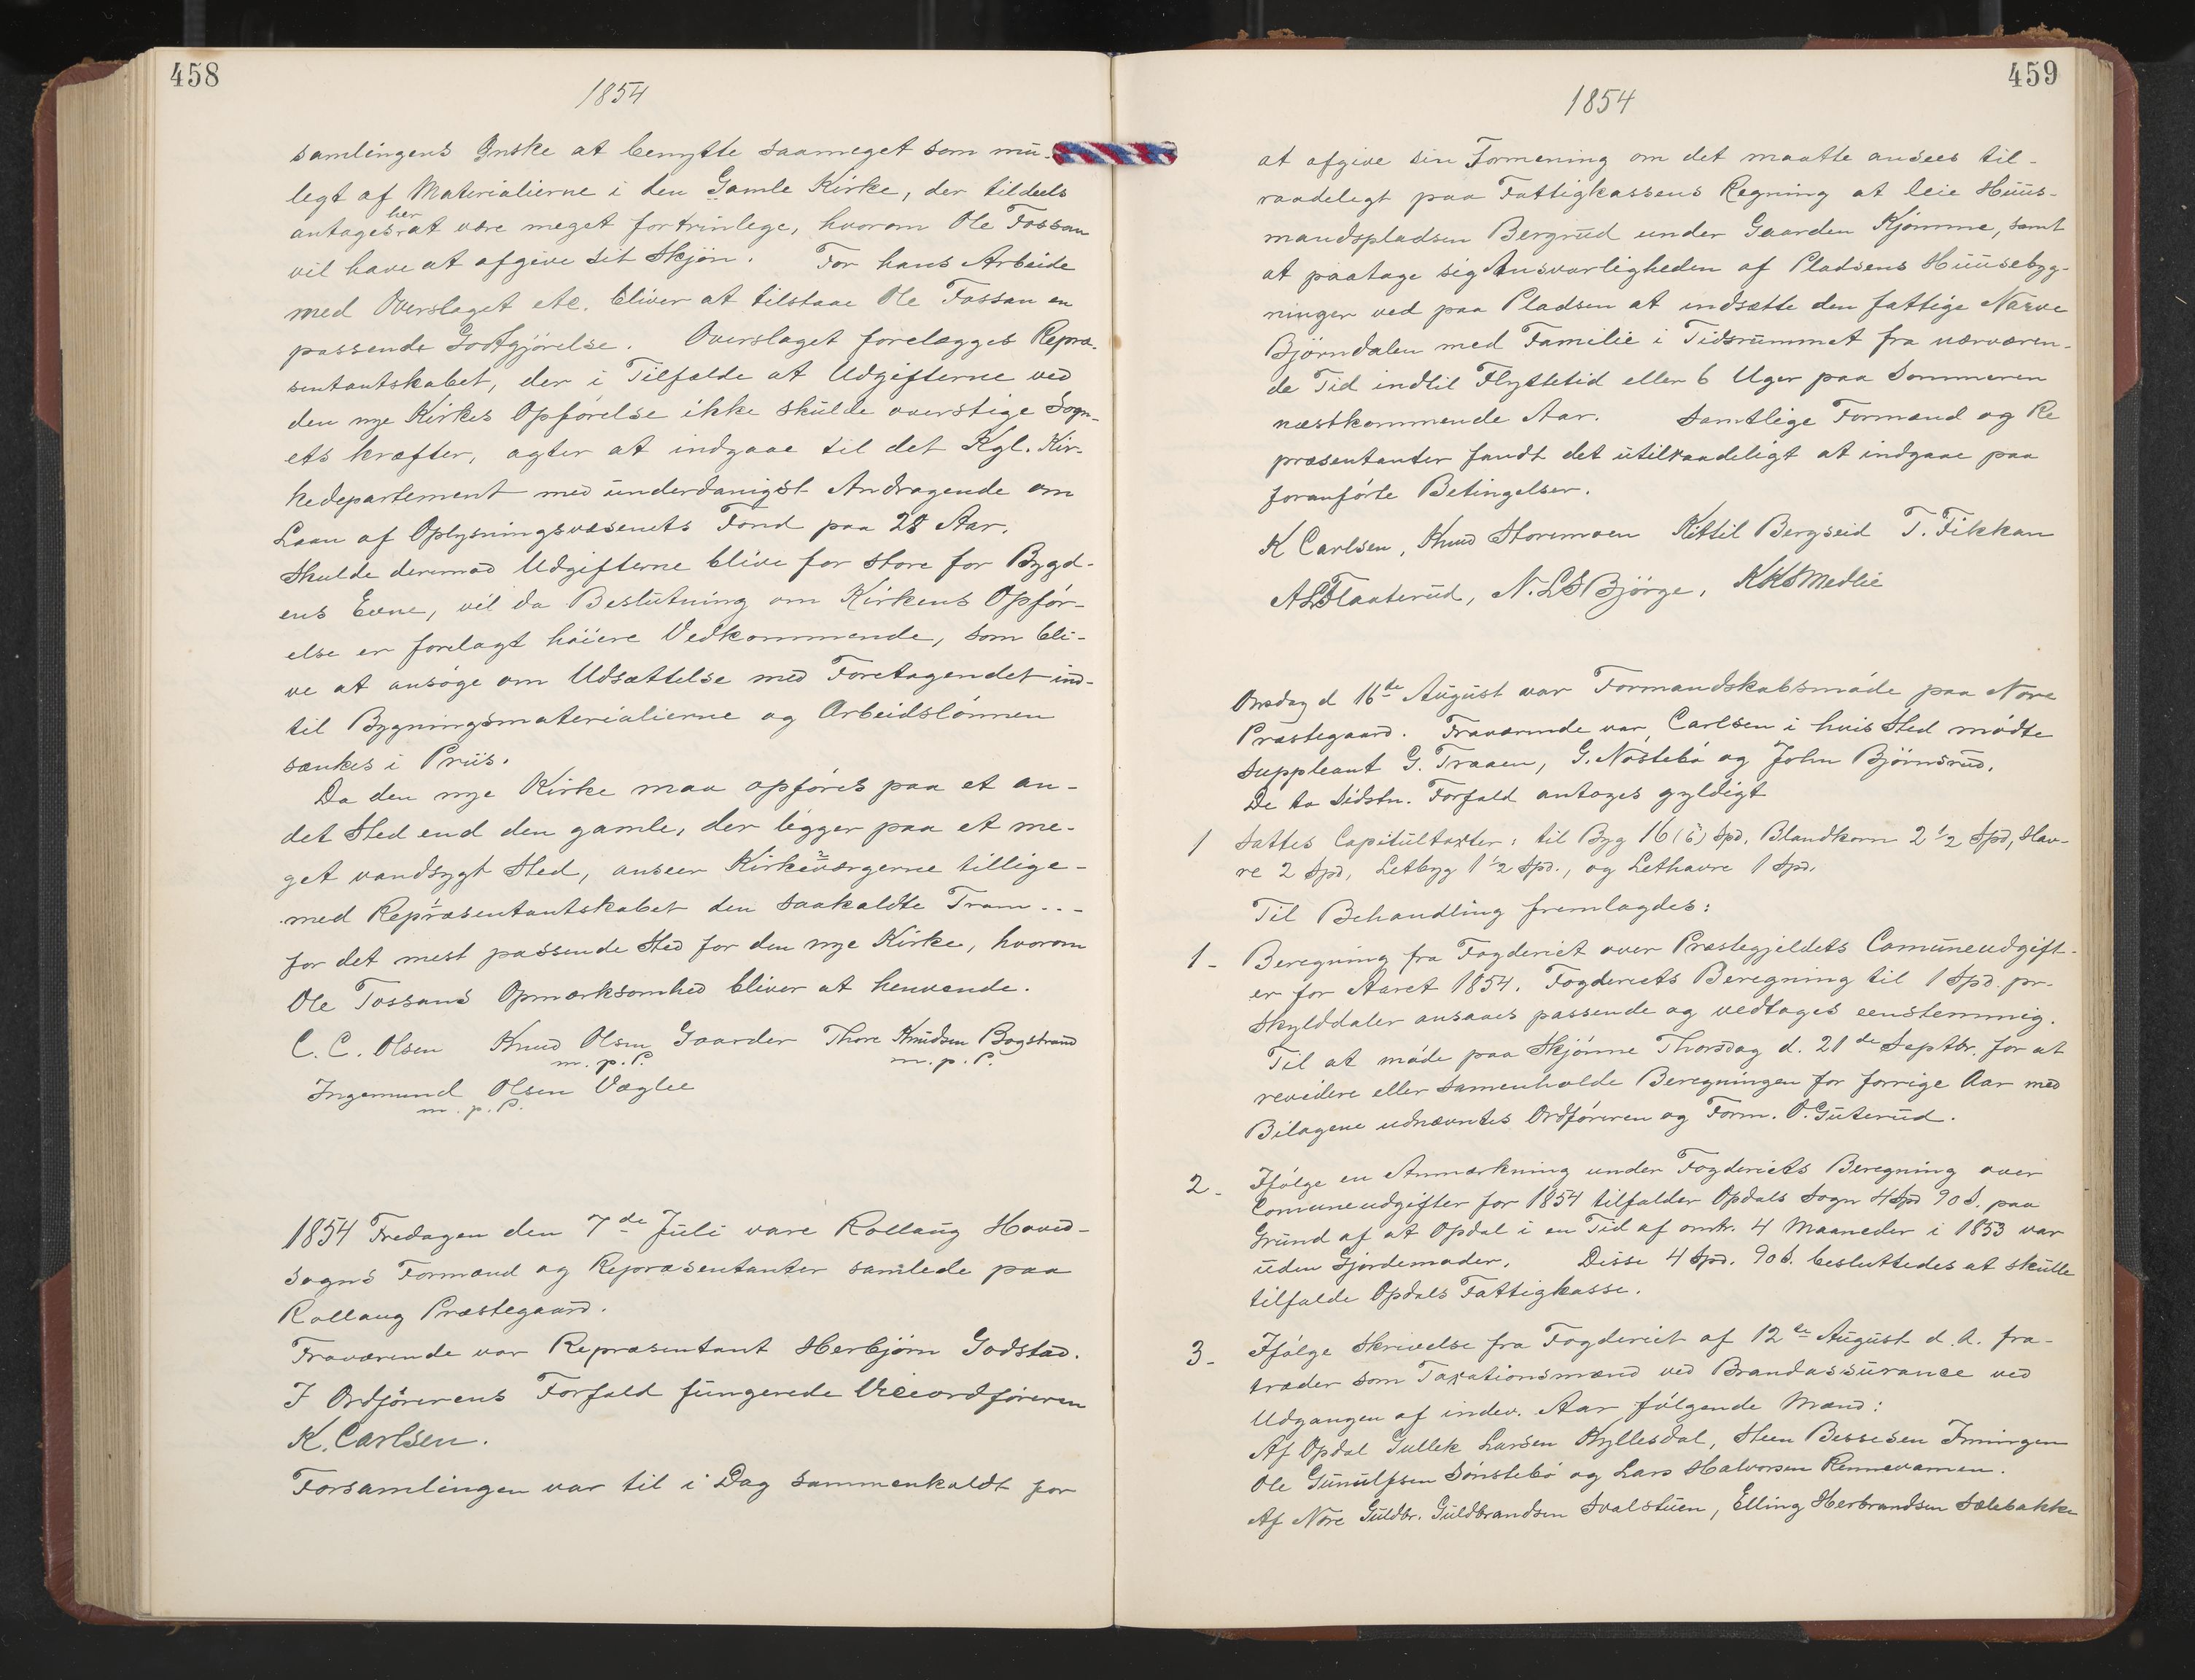 458
1854
samlingens Ønske at benytte saameget som mu-
legt af Materialierne i den Gamle Kirke, der tildeels
antages her at være meget fortrinlege, hvorom Ole Tossan
vil have at afgive sit Skjøn. For hans Arbeide
med Overslaget etc. bliver at tilstaae Ole Tossan en
passende Godtgjörelse. Overslaget forelægges Repræ-
sentantskabet, der i Tilfælde at Udgifterne ved
den nye Kirkes Opförelse ikke skulde overstige Sogn-
ets kræfter, agter at indgaae til det Kgl. Kir-
kedepartement med underdanigst Andragende om
Laan af Oplysningsvæsenets Fond paa 28 Aar.
Skulde derimod Udgifterne blive for store for Bygd-
ens Evne, vil da Beslutning om Kirkens Opför-
else er forelagt höiere Vedkommende, som bli-
ve at ansöge om Udsættelse med Foretagendet ind-
til Bygningsmaterialierne og Arbeidslönnen
sænkes i Priis.
Da den nye Kirke maa opföres paa et an-
det Sted end den gamle, der ligger paa et me-
get vandsygt Sted, anseer Kirkeværgerne tillige-
med Repræsentantskabet den saakaldte Tram...
for det mest passende Sted for den nye Kirke, hvorom
Ole Tossans Opmærksomhed bliver at henvende.
C. C. Olsen Knud Olsen Gaarder Thore Knudsen Bogstrand
m. p. P. m. p. P.
Ingemund Olsen Væglee
m. p. P.
1854 Fredagen den 7de Juli vare Rollaug Hoved-
sogns Formænd og Repræsentanter samlede paa
Rollaug Præstegaard.
Fraværende var Repræsentant Herbjörn Godstad.
I Ordförerens Forfald fungerede Viceordföreren
K. Carlsen.
Forsamlingen var til i Dag sammenkaldt for
459
1854
at afgive sin Formening om det maatte ansees til-
raadeligt paa Fattigkassens Regning at leie Huus-
mandspladsen Bergrud under Gaarden Kjømme, samt
at paatage sig Ansvarligheden af Pladsens Huusebyg-
ninger ved paa Pladsen at indsætte den fattige Narve
Björndalen med Familie i Tidsrummet fra nærværen-
de Tid indtil Flyttetid eller 6 Uger paa Sommeren
næstkommende Aar. Samtlige Formænd og Re
præsentanter fandt det utilraadeligt at indgaae paa
foranförte Betingelser.
K Carlsen, Knud Storemoen Kittil Bergseid T. Fikkan
ALSTlaaterud, N. LSBjörge, KKSMedlie
Onsdag d 16de August var Formandskabsmöde paa Nore
Præstegaard. Fraværende var Carlsen i hvis Sted mödte
Suppleant G. Traaen, G. Nöstebö og John Björnsrud.
De to Sidstn. Forfald antages gyldigt
1 Sattes Capitultaxter: til Byg 16 (6) Spd. Blandkorn 2 1/2 Spd, Hav-
re 2 Spd, Letbyg 1 1/2 Spd., og Lethavre 1 Spd.
Til Behandling fremlagdes:
1- Beregning fra Fogderiet over Præstegjeldets Comuneudgift-
er for Aaret 1854. Fogderiets Beregning til 1 Spd. pr.
Skylddaler ansaaes passende og vedtages eenstemmig.
Til at möde paa Skjönne Thorsdag d. 21de Septbr. for at
revidere eller samenholde Beregningen for forrige Aar med
Bilagene udnævntes Ordföreren og Form. O. Guterud.
2- Ifölge en Anmærkning under Fogderiets Beregning over
Comuneudgifter for 1854 tilfalder Opdals Sogn 4 Spd 90 S. paa
Grund af at Opdal i en Tid af omtr. 4 Maaneder i 1853 var
uden Gjordemoder. Disse 4 Spd. 90 S. besluttedes at skulle
tilfalde Opdals Fattigkasse.
3- Ifölge Skrivelse fra Fogderiet af 12te August d. A. fra-
træder som Taxationsmænd ved Brandassurance ved
Udgangen af indev. Aar fölgende Mænd:
Af Opdal Gullek Larsen Hyllesdal, Steen Bessesen Imingen
Ole Gunulfsen Sönstebö og Lars Halvorsen Rennevamen.
Af Nore Guldbr. Guldbrandsen Svalstuen, Elling Herbrandsen Sælebakke